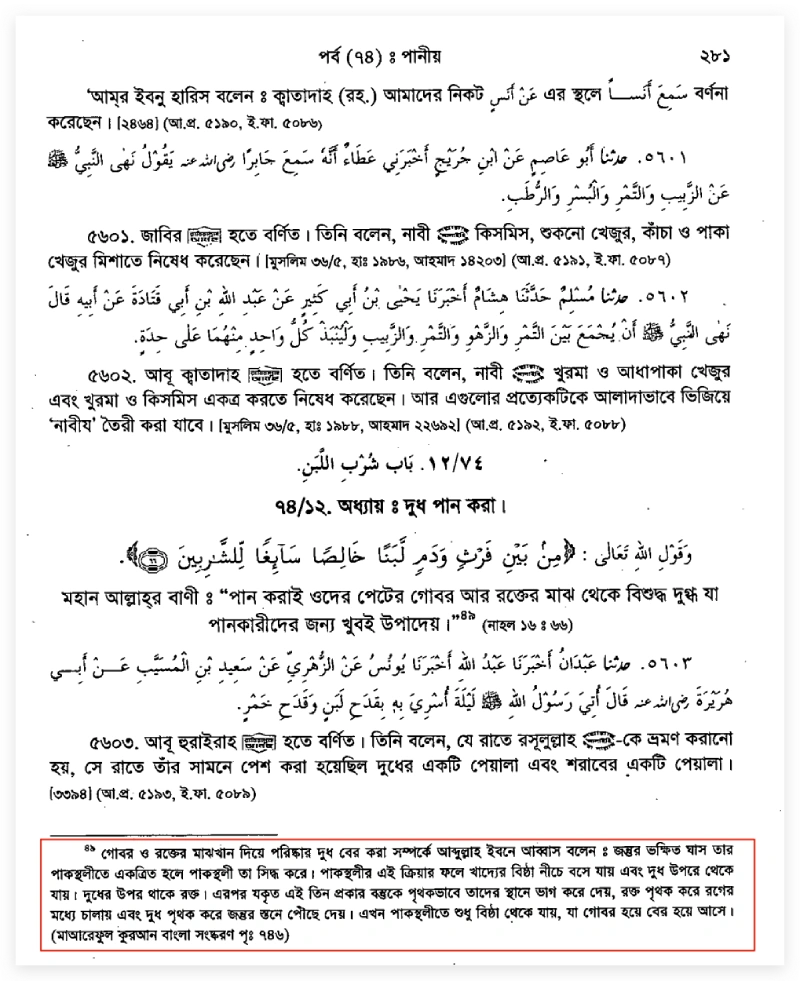 পর্ব (৭৪) ঃ পানীয়
২৮১
‘আম্‌র ইবনু হারিস বলেন ঃ ক্বাতাদাহ (রহ.) আমাদের নিকট عَنْ أَنَسٍ এর স্থলে سَمِعَ أَنَسًا বর্ণনা
করেছেন। [২৪৬৪] (আ.প্র. ৫১৯০, ই.ফা. ৫০৮৬)
٥٦٠١. حدثنا أَبُو عَاصِمٍ عَنْ ابْنِ جُرَيْجٍ أَخْبَرَنِي عَطَاءٌ أَنَّهُ سَمِعَ جَابِرًا رضى الله عنه يَقُولُ نَهَى النَّبِيُّ ﷺ
عَنْ الزَّبِيبِ وَالتَّمْرِ وَالْبُسْرِ وَالرُّطَبِ.
৫৬০১. জাবির হতে বর্ণিত। তিনি বলেন, নাবী কিসমিস, শুকনো খেজুর, কাঁচা ও পাকা
খেজুর মিশাতে নিষেধ করেছেন। [মুসলিম ৩৬/৫, হাঃ ১৯৮৬, আহমাদ ১৪২০৩] (আ.প্র. ৫১৯১, ই.ফা. ৫০৮৭)
٥٦٠٢. حدثنا مُسْلِمٌ حَدَّثَنَا هِشَامٌ أَخْبَرَنَا يَحْيَى بْنُ أَبِي كَثِيرٍ عَنْ عَبْدِ اللهِ بْنِ أَبِي قَتَادَةَ عَنْ أَبِيهِ قَالَ
نَهَى النَّبِيُّ ﷺ أَنْ يُجْمَعَ بَيْنَ التَّمْرِ وَالزَّهْوِ وَالتَّمْرِ وَالزَّبِيبِ وَلْيُنْبَذْ كُلُّ وَاحِدٍ مِنْهُمَا عَلَى حِدَةٍ.
৫৬০২. আবূ ক্বাতাদাহ হতে বর্ণিত। তিনি বলেন, নাবী খুরমা ও আধাপাকা খেজুর
এবং খুরমা ও কিসমিস একত্র করতে নিষেধ করেছেন। আর এগুলোর প্রত্যেকটিকে আলাদাভাবে ভিজিয়ে
‘নাবীয’ তৈরী করা যাবে। [মুসলিম ৩৬/৫, হাঃ ১৯৮৮, আহমাদ ২২৬৯২] (আ.প্র. ৫১৯২, ই.ফা. ৫০৮৮)
١٢/٧٤. بَاب شُرْبِ اللَّبَنِ.
৭৪/১২. অধ্যায় ঃ দুধ পান করা।
وَقَوْلِ اللهِ تَعَالَى : ﴿مِنْ بَيْنِ فَرْثٍ وَدَمٍ لَّبَنًا خَالِصًا سَآئِغًا لِّلشَّارِبِينَ ٦٦﴾.
মহান আল্লাহ্‌র বাণী ঃ “পান করাই ওদের পেটের গোবর আর রক্তের মাঝ থেকে বিশুদ্ধ দুগ্ধ যা
পানকারীদের জন্য খুবই উপাদেয়।”৪৯ (নাহল ১৬ ঃ ৬৬)
٥٦٠٣. حدثنا عَبْدَانُ أَخْبَرَنَا عَبْدُ اللهِ أَخْبَرَنَا يُونُسُ عَنْ الزُّهْرِيِّ عَنْ سَعِيدِ بْنِ الْمُسَيَّبِ عَنْ أَبِي
هُرَيْرَةَ رضى الله عنه قَالَ أُتِيَ رَسُولُ اللهِ ﷺ لَيْلَةَ أُسْرِيَ بِهِ بِقَدَحِ لَبَنٍ وَقَدَحِ خَمْرٍ.
৫৬০৩. আবূ হুরাইরাহ হতে বর্ণিত। তিনি বলেন, যে রাতে রসূলুল্লাহ -কে ভ্রমণ করানো
হয়, সে রাতে তাঁর সামনে পেশ করা হয়েছিল দুধের একটি পেয়ালা এবং শরাবের একটি পেয়ালা।
[৩৩৯৪] (আ.প্র. ৫১৯৩, ই.ফা. ৫০৮৯)
৪৯ গোবর ও রক্তের মাঝখান দিয়ে পরিষ্কার দুধ বের করা সম্পর্কে আব্দুল্লাহ ইবনে আব্বাস বলেন ঃ জন্তুর ভক্ষিত ঘাস তার
পাকস্থলীতে একত্রিত হলে পাকস্থলী তা সিদ্ধ করে। পাকস্থলীর এই ক্রিয়ার ফলে খাদ্যের বিষ্ঠা নীচে বসে যায় এবং দুধ উপরে থেকে
যায়। দুধের উপর থাকে রক্ত। এরপর যকৃত এই তিন প্রকার বস্তুকে পৃথকভাবে তাদের স্থানে ভাগ করে দেয়, রক্ত পৃথক করে রগের
মধ্যে চালায় এবং দুধ পৃথক করে জন্তুর স্তনে পৌছে দেয়। এখন পাকস্থলীতে শুধু বিষ্ঠা থেকে যায়, যা গোবর হয়ে বের হয়ে আসে।
(মাআরেফুল কুরআন বাংলা সংস্করণ পৃঃ ৭৪৬)